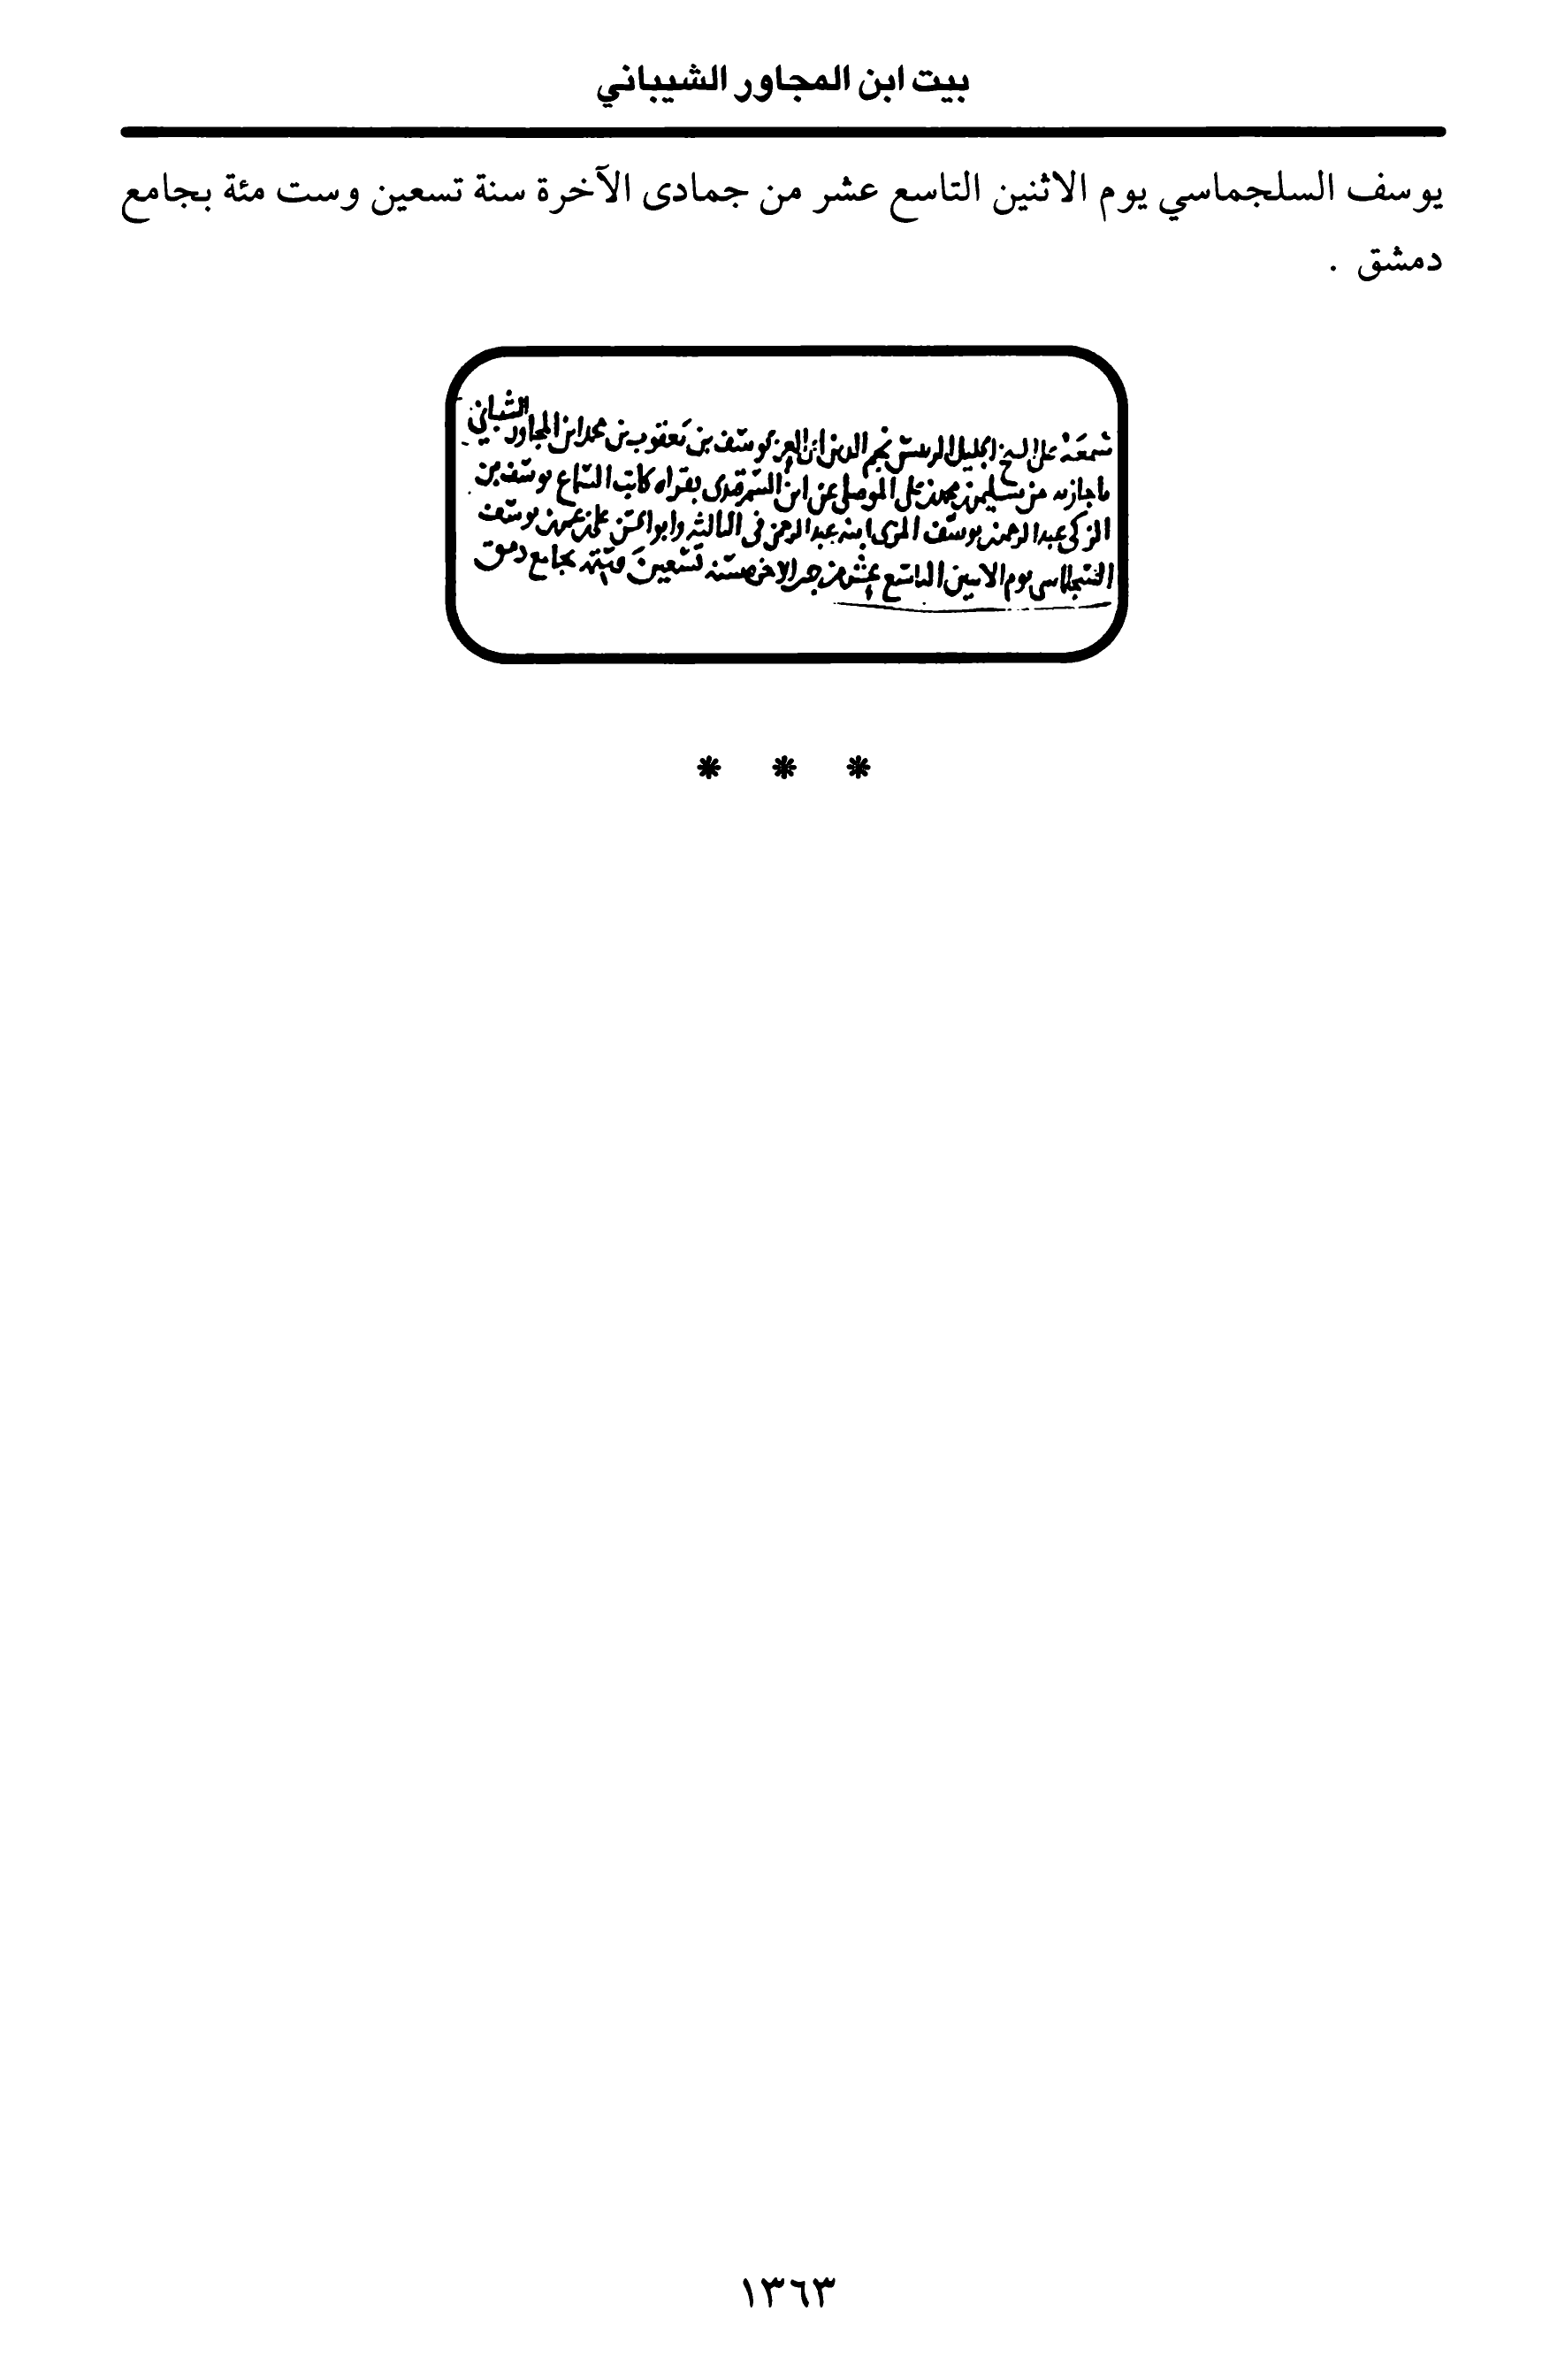 بيت ابن المجاور الشيباني
يوسف السلجماسي يوم الاثنين التاسع عشر من جمادى الآخرة سنة تسعين وست مئة بجامع
دمشق .
سمعه على الجليل الرئيس نجم الدين ابن العز يوسف بن يعقوب بن محمد ابن المجاور الشيباني
باجازته من سليمن بن محمد بن علي الموصلي عن ابن السمرقندي بقراه كاتب السماع يوسف بن
الزكي عبد الرحمن بن يوسف المزي ابنه عبد الرحمن في الثالثه وابو الحسن علي بن يوسف
يوم الاثنين التاسع عشر من الاخره سنه تسعين بجامع دمشق
* * *
١٣٦٣